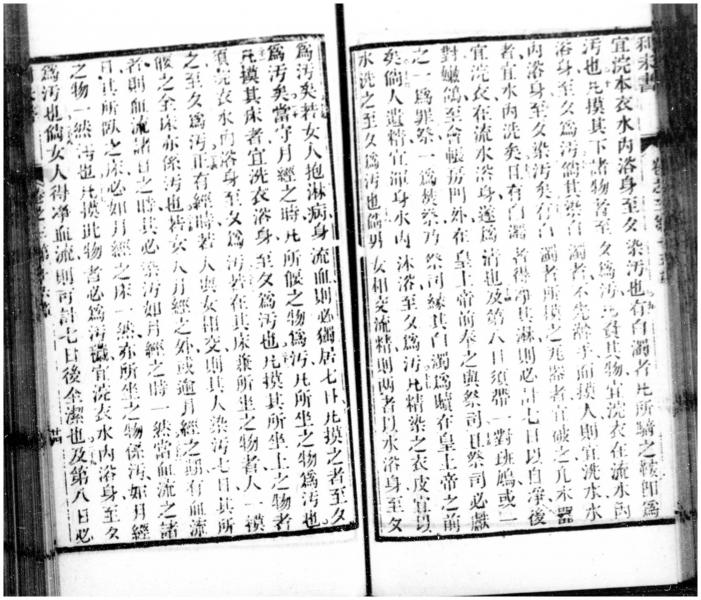 利未書
宜浣本衣水內浴身至夂染污也有白濁者凡所騎之鞍即爲
污也凡摸其下諸物者至夂爲污凡負其物宜浣衣在流水內
浴身至夂爲污倘其染白濁者不先滌手而摸人則宜洗水
內浴身至夂染污矣有白濁者所摸之死器者宜破之凡木器
者宜水內洗矣且有白濁者得淨其淋則必計七日以自淨後
宜浣衣在流水浴身遂爲清也及第八日須帶一對班鳩或一
對嫩鴿至會帳房門外在皇上帝前奉之與祭司且祭司必獻
之一爲罪祭一爲燔祭乃祭司緣其白濁爲贖在皇上帝之前
矣倘人遺精宜渾身水內沐浴至夂爲污凡精染之衣皮宜以
水洗之至夂爲污也倘男女相交流精則兩者以水浴身至夂
爲污矣若女人抱淋病身流血則必獨居七日凡摸之者至夂
爲污矣當守月經之時凡所偃之物爲污凡所坐之物爲污也
凡摸其床者宜洗衣浴身至夂爲污也凡摸其所坐上之物者
須浣衣水內浴身至夂爲污若在其床兼所坐之物者人一摸
之至夂爲污正有經時若人與女相交則其人染污七日其所
偃之全床亦係污也若女人月經之外或逾月經之期有血流
者則血流諸日之時其必染污如月經之時一然當血流之諸
日其所臥之床必如月經之床一然亦所坐之物係污如月經
之物一然污也凡摸此物者必爲污還宜浣衣水內浴身至夂
爲污也倘女人得淨血流則可計七日後全潔也及第八日必